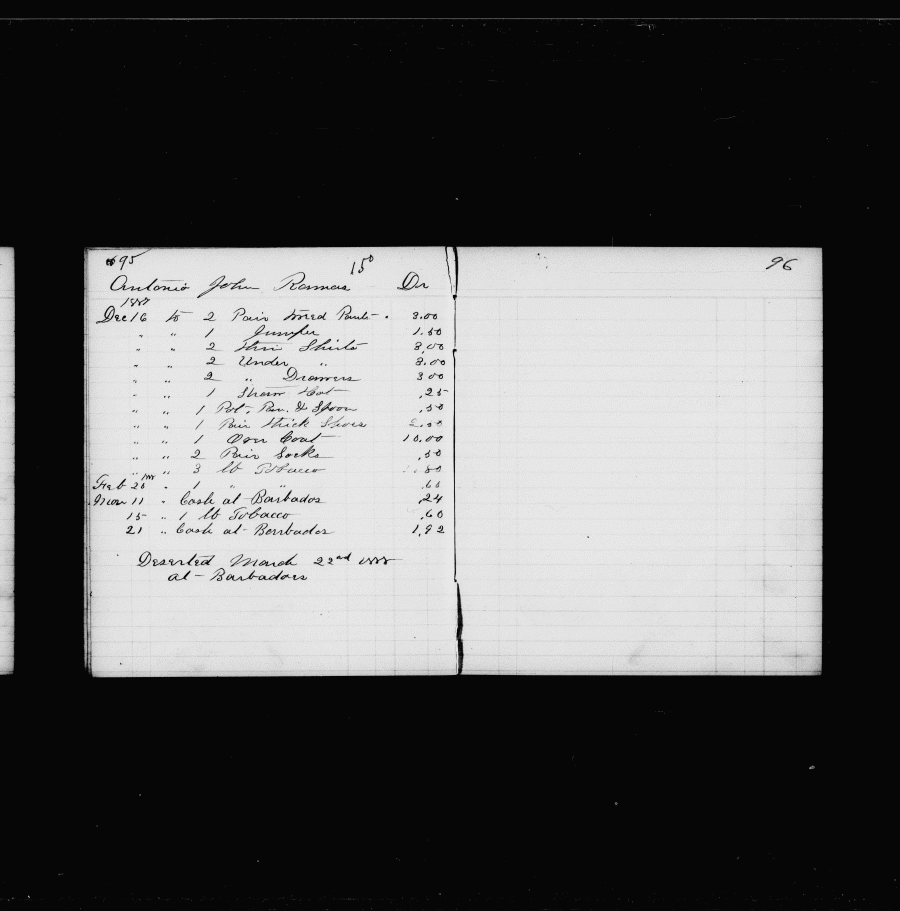 95
150
Antonio John Ramas Dr
1887
Dec 16 to 2 Pair Pants 3.00
" " 1 Jumper 1.50
" " 2 Shirts 3.00
" " 2 Under " 3.00
" " 2 " Drawers 3.00
" " 1 Straw Hat .25
" " 1 Pot, Pan & Spoon .50
" " 1 Pair thick Shoes 2.00
" " 1 Over Coat 10.00
" " 2 Pair Socks .50
" " 3 lb Tobacco 1.80
Feb 20 1888 " 1 " " .60
Mar 11 " Cash at Barbados .24
15 " 1 lb Tobacco .60
21 " Cash at Barbados 1.92
Deserted March 22nd 1888
at Barbadoes
96